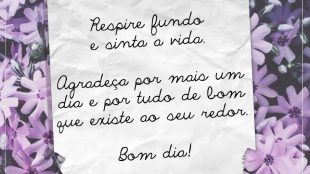 Respire fundo
e sinta a vida.
Agradeça por mais um
dia e por tudo de bom
que existe ao seu redor.
Bom dia!